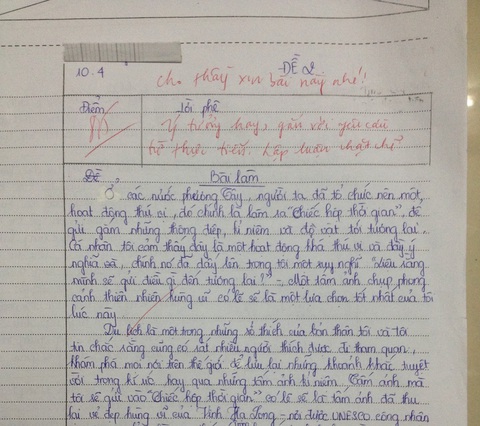 10.4
ĐỀ 2
Cho thầy xin bài này nhé!
Điểm
Lời phê
Ý tưởng hay, gắn với yêu cầu
từ thực tiễn. Lập luận chặt chẽ
Đề
Bài làm
Ở các nước phương Tây, người ta đã tổ chức nên một
hoạt động thú vị, đó chính là làm ra "Chiếc hộp thời gian", để
gửi gắm những thông điệp, kỉ niệm và đồ vật tới tương lai.
Cá nhân tôi cảm thấy đây là một hoạt động khá thú vị và đầy ý
nghĩa và, chính nó đã dấy lên trong tôi một suy nghĩ "Liệu rằng
mình sẽ gửi điều gì đến tương lai?" - Một tấm ảnh chụp phong
cảnh thiên nhiên hùng vĩ có lẽ sẽ là một lựa chọn tốt nhất của tôi
lúc này.
Du lịch là một trong những sở thích của bản thân tôi và tôi
tin chắc rằng cũng có rất nhiều người thích được đi tham quan,
khám phá mọi nơi trên thế giới để lưu lại những khoảnh khắc tuyệt
vời trong kí ức hay qua những tấm ảnh kỉ niệm. Tấm ảnh mà
tôi sẽ gửi vào "Chiếc hộp thời gian" có lẽ sẽ là tấm ảnh đã thu
lại vẻ đẹp hùng vĩ của Vịnh Hạ Long - nơi được UNESCO công nhận